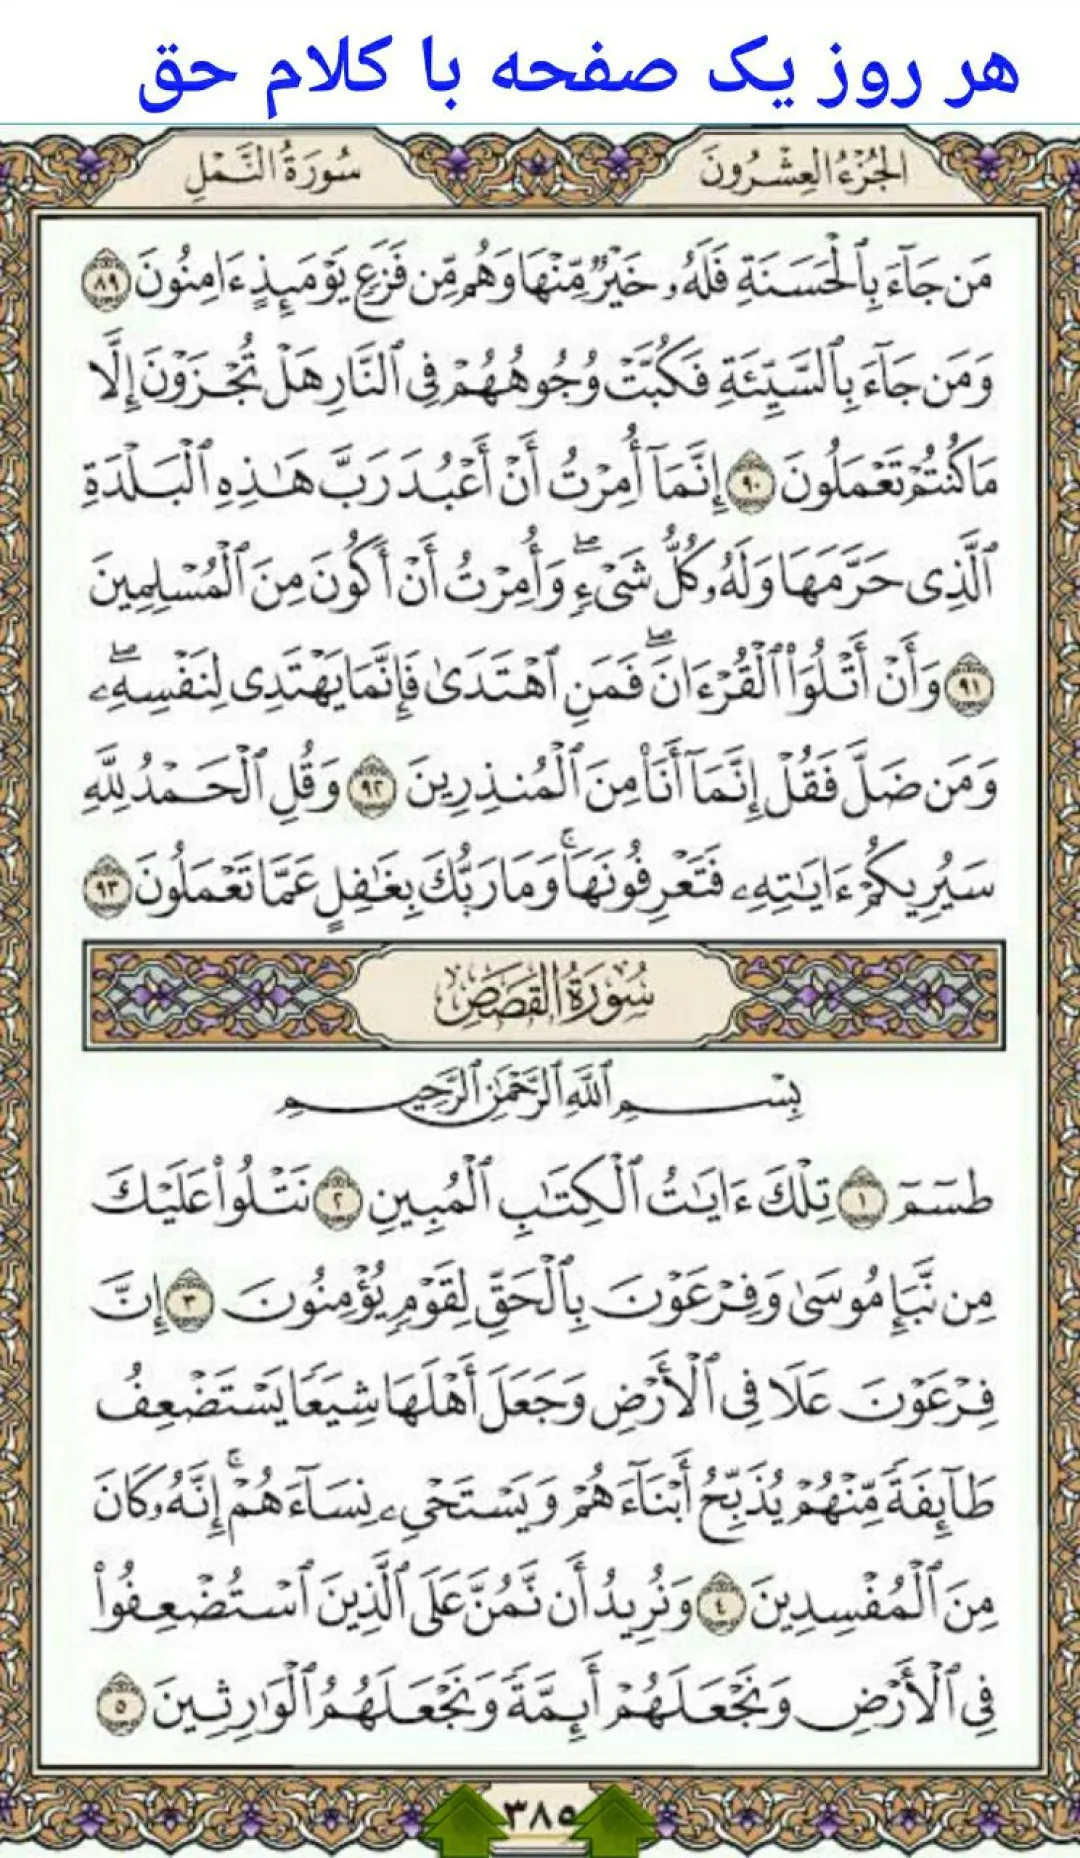 هر روز یک صفحه با کلام حق
الجُزْءُ العِشْرُونَ
سُورَةُ النَّمْلِ
مَن جَآءَ بِٱلْحَسَنَةِ فَلَهُۥ خَيْرٌ مِّنْهَا وَهُم مِّن فَزَعٍ يَوْمَئِذٍ ءَامِنُونَ ٨٩
وَمَن جَآءَ بِٱلسَّيِّئَةِ فَكُبَّتْ وُجُوهُهُمْ فِى ٱلنَّارِ هَلْ تُجْزَوْنَ إِلَّا
مَا كُنتُمْ تَعْمَلُونَ ٩٠ إِنَّمَآ أُمِرْتُ أَنْ أَعْبُدَ رَبَّ هَـٰذِهِ ٱلْبَلْدَةِ
ٱلَّذِى حَرَّمَهَا وَلَهُۥ كُلُّ شَىْءٍ ۖ وَأُمِرْتُ أَنْ أَكُونَ مِنَ ٱلْمُسْلِمِينَ
٩١ وَأَنْ أَتْلُوَا۟ ٱلْقُرْءَانَ ۖ فَمَنِ ٱهْتَدَىٰ فَإِنَّمَا يَهْتَدِى لِنَفْسِهِۦ ۖ
وَمَن ضَلَّ فَقُلْ إِنَّمَآ أَنَا۠ مِنَ ٱلْمُنذِرِينَ ٩٢ وَقُلِ ٱلْحَمْدُ لِلَّهِ
سَيُرِيكُمْ ءَايَـٰتِهِۦ فَتَعْرِفُونَهَا ۚ وَمَا رَبُّكَ بِغَـٰفِلٍ عَمَّا تَعْمَلُونَ ٩٣
سُورَةُ القَصَصِ
بِسْمِ ٱللَّهِ ٱلرَّحْمَـٰنِ ٱلرَّحِيمِ
طسٓمٓ ١ تِلْكَ ءَايَـٰتُ ٱلْكِتَـٰبِ ٱلْمُبِينِ ٢ نَتْلُوا۟ عَلَيْكَ
مِن نَّبَإِ مُوسَىٰ وَفِرْعَوْنَ بِٱلْحَقِّ لِقَوْمٍ يُؤْمِنُونَ ٣ إِنَّ
فِرْعَوْنَ عَلَا فِى ٱلْأَرْضِ وَجَعَلَ أَهْلَهَا شِيَعًا يَسْتَضْعِفُ
طَآئِفَةً مِّنْهُمْ يُذَبِّحُ أَبْنَآءَهُمْ وَيَسْتَحْىِۦ نِسَآءَهُمْ ۚ إِنَّهُۥ كَانَ
مِنَ ٱلْمُفْسِدِينَ ٤ وَنُرِيدُ أَن نَّمُنَّ عَلَى ٱلَّذِينَ ٱسْتُضْعِفُوا۟
فِى ٱلْأَرْضِ وَنَجْعَلَهُمْ أَئِمَّةً وَنَجْعَلَهُمُ ٱلْوَٰرِثِينَ ٥
٣٨٥